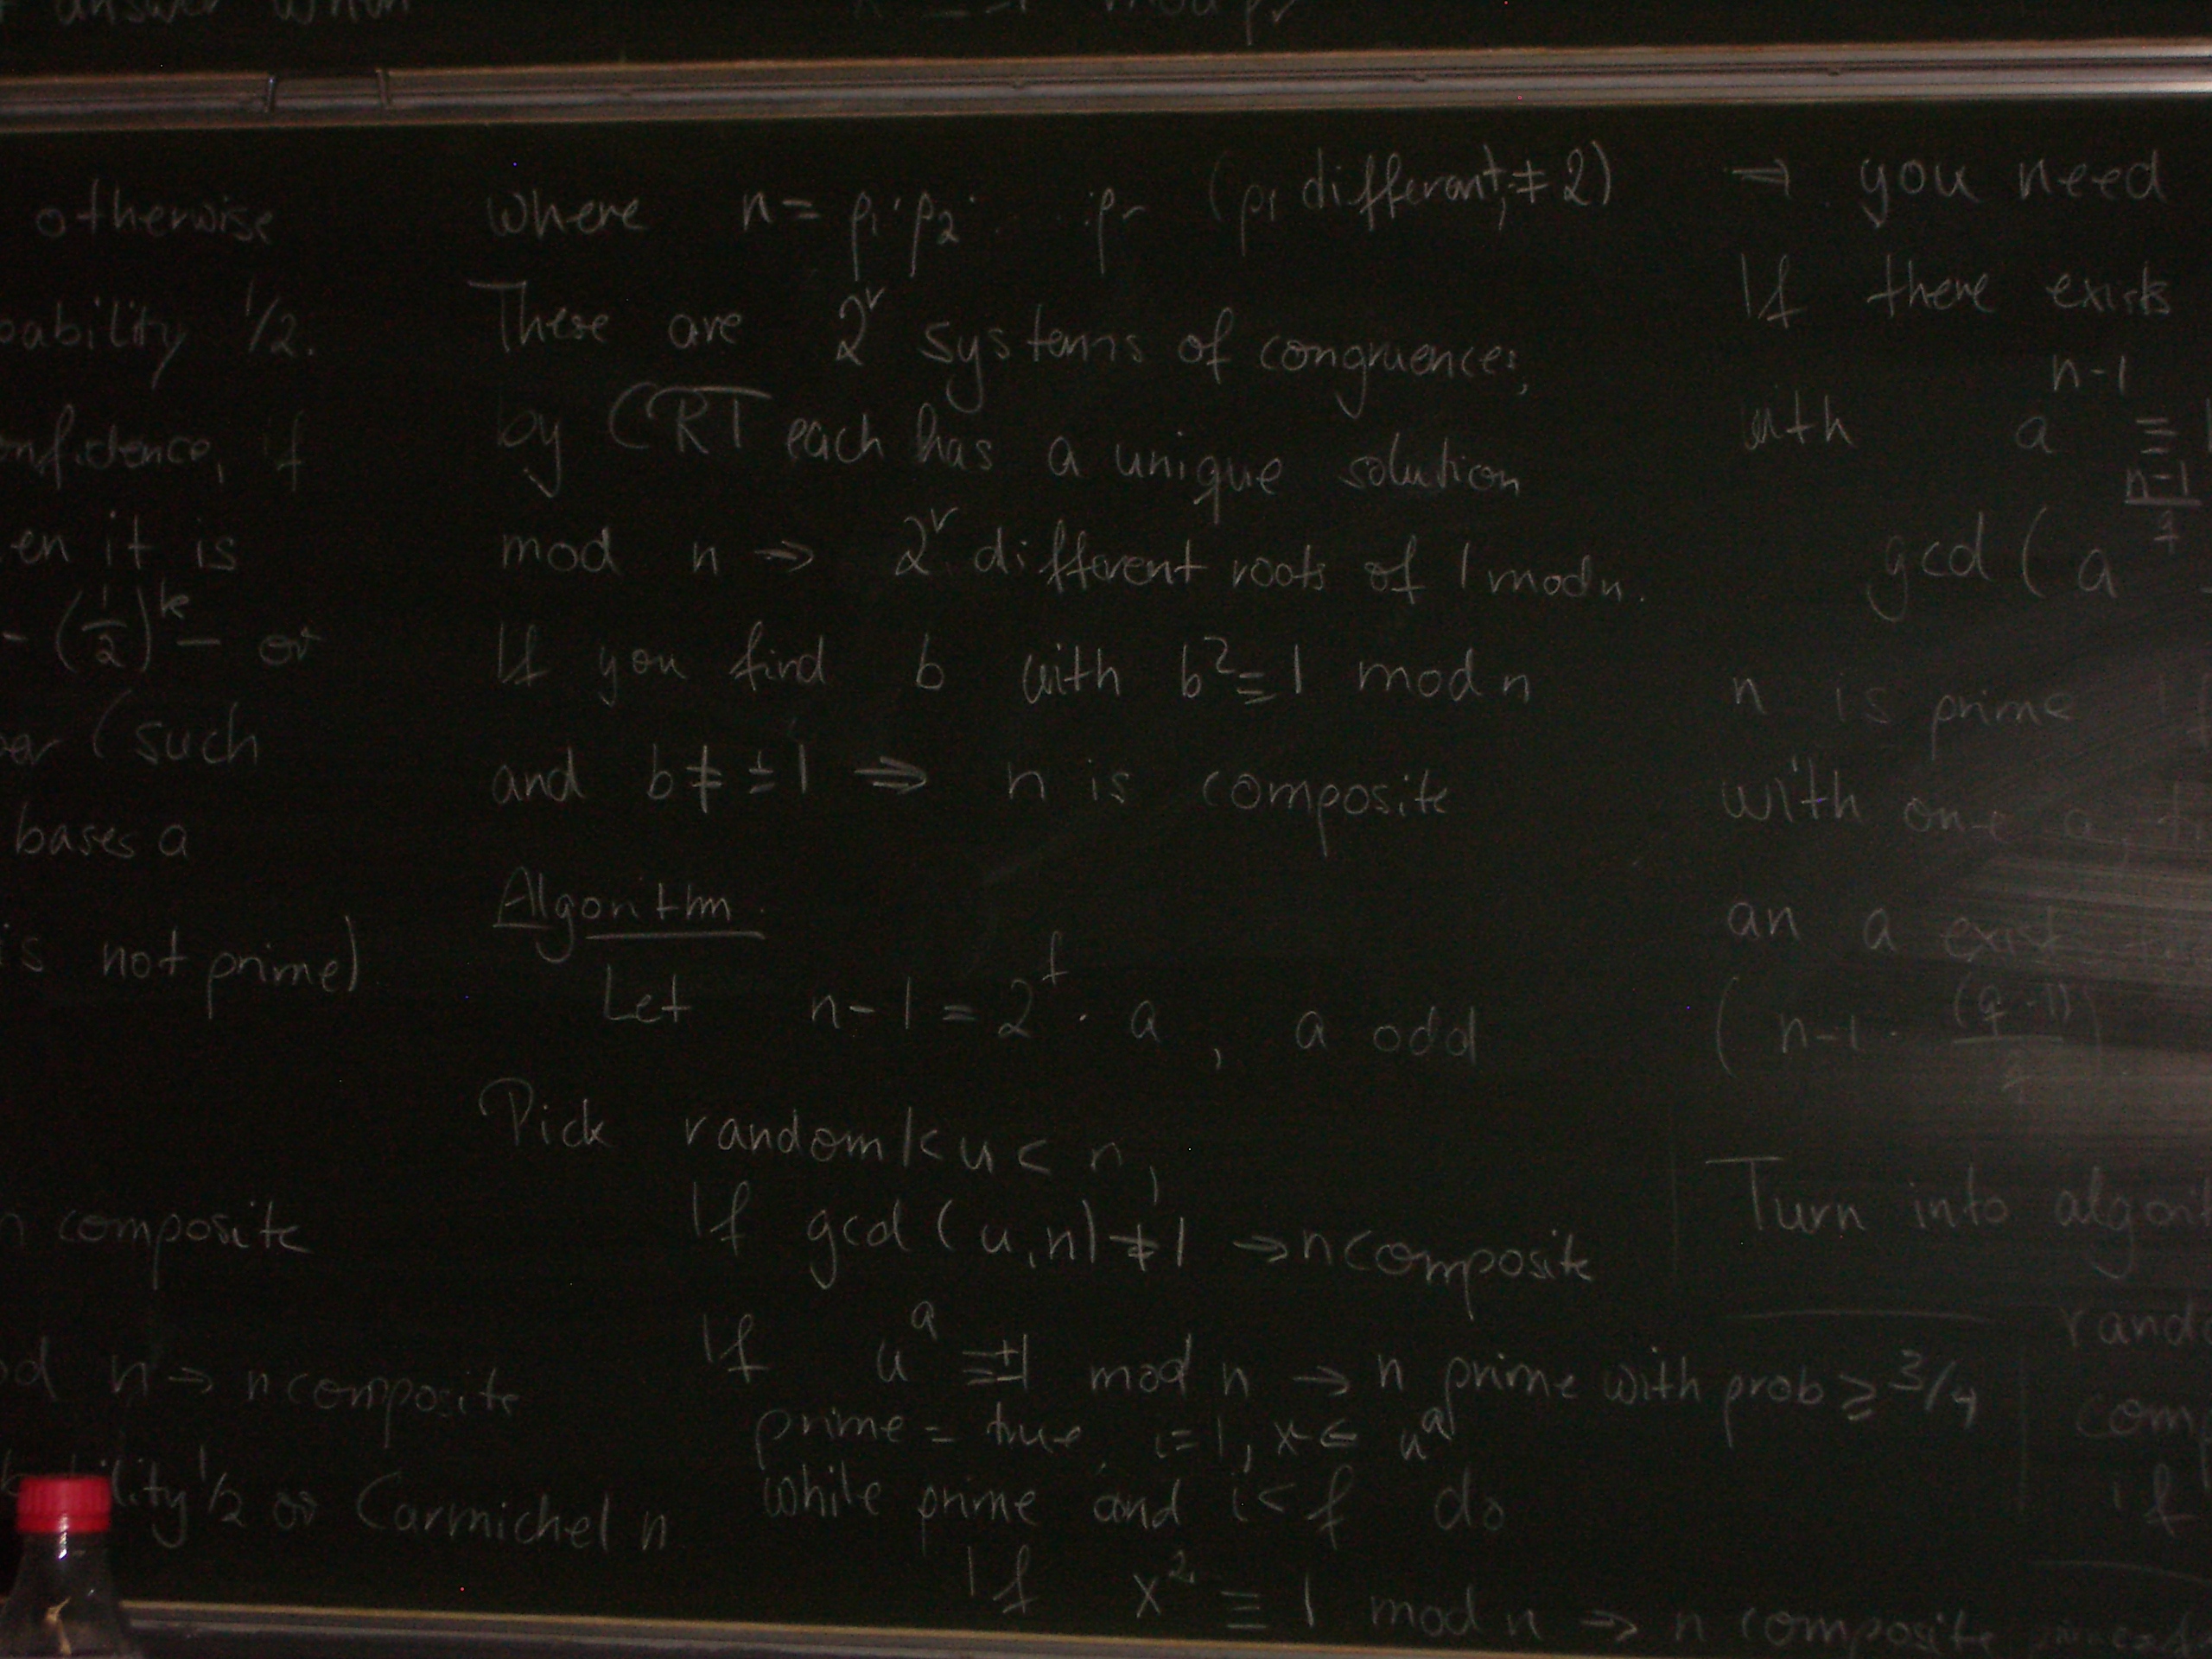 answer when
mod pr
otherwise
bability 1/2.
onfidence, if
en it is
- (1/2)^k - or
ber (such
bases a
is not prime)
n composite
od n → n composite
bility 1/2 or Carmichel n
where n = p₁·p₂· ... ·pr (pi different, ≠ 2)
These are 2^r systems of congruences,
by CRT each has a unique solution
mod n → 2^r different roots of 1 mod n.
If you find b with b² ≡ 1 mod n
and b ≠ ±1 ⇒ n is composite
Algorithm.
Let n-1 = 2^f · a , a odd
Pick random 1<u<n,
If gcd(u,n) ≠ 1 → n composite
If u^a ≡ ±1 mod n → n prime with prob ≥ 3/4
prime = true, i=1, x ← u^a
while prime and i<f do
If x² ≡ 1 mod n → n composite
⇒ you need
If there exists
with a^(n-1) ≡ 1
gcd(a^((n-1)/q)
n is prime
with one a,
an a exists
(n-1 · (q-1)/q)
Turn into algorit
rand
comp
if